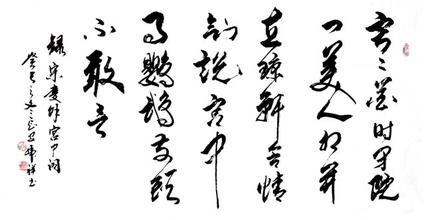 寂々花时闭院
门美人相并
立琼轩含情
欲说宫中
事鹦鹉前头
不敢言
录朱庆馀宫中词
癸巳之冬 祥书